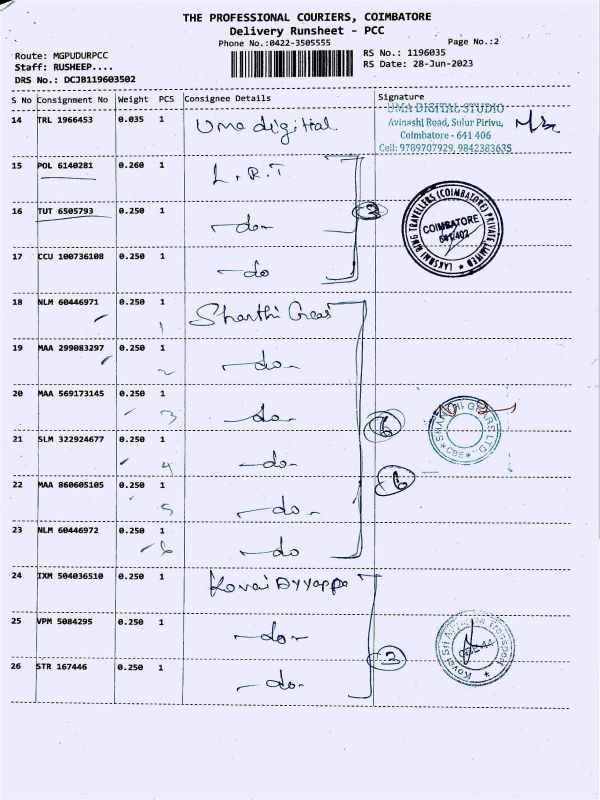 THE PROFESSIONAL COURIERS, COIMBATORE
Delivery Runsheet - PCC
Phone No.:0422-3505555 Page No.:2
Route: MGPUDURPCC RS No.: 1196035
Staff: RUSHEEP.... RS Date: 28-Jun-2023
DRS No.: DCJB119603502
S No Consignment No Weight PCS Consignee Details Signature
14 TRL 1966453 0.035 1 Uma digital UMA DIGITAL STUDIO
Avinashi Road, Sulur Pirivu,
Coimbatore - 641 406
Cell: 9789707929, 9842383635
15 POL 6140281 0.260 1 L.R.T
16 TUT 6505793 0.250 1 -do- 3
LAKSHMI RING TRAVELLERS (COIMBATORE) PRIVATE LIMITED
COIMBATORE
641 402
17 CCU 100736108 0.250 1 -do
18 NLM 60446971 0.250 1 Shanthi Gears
1
19 MAA 299083297 0.250 1 -do-
2
20 MAA 569173145 0.250 1 -do-
3
SHANTHI GEARS LTD.
CBE
21 SLM 322924677 0.250 1 -do-
4
6
22 MAA 860605105 0.250 1 -do-
5
23 NLM 60446972 0.250 1 -do
6
24 IXM 504036510 0.250 1 Kovai Ayyappa
25 VPM 5084295 0.250 1 -do-
Kovai Sri Ayyappa Transport
26 STR 167446 0.250 1 -do- 3